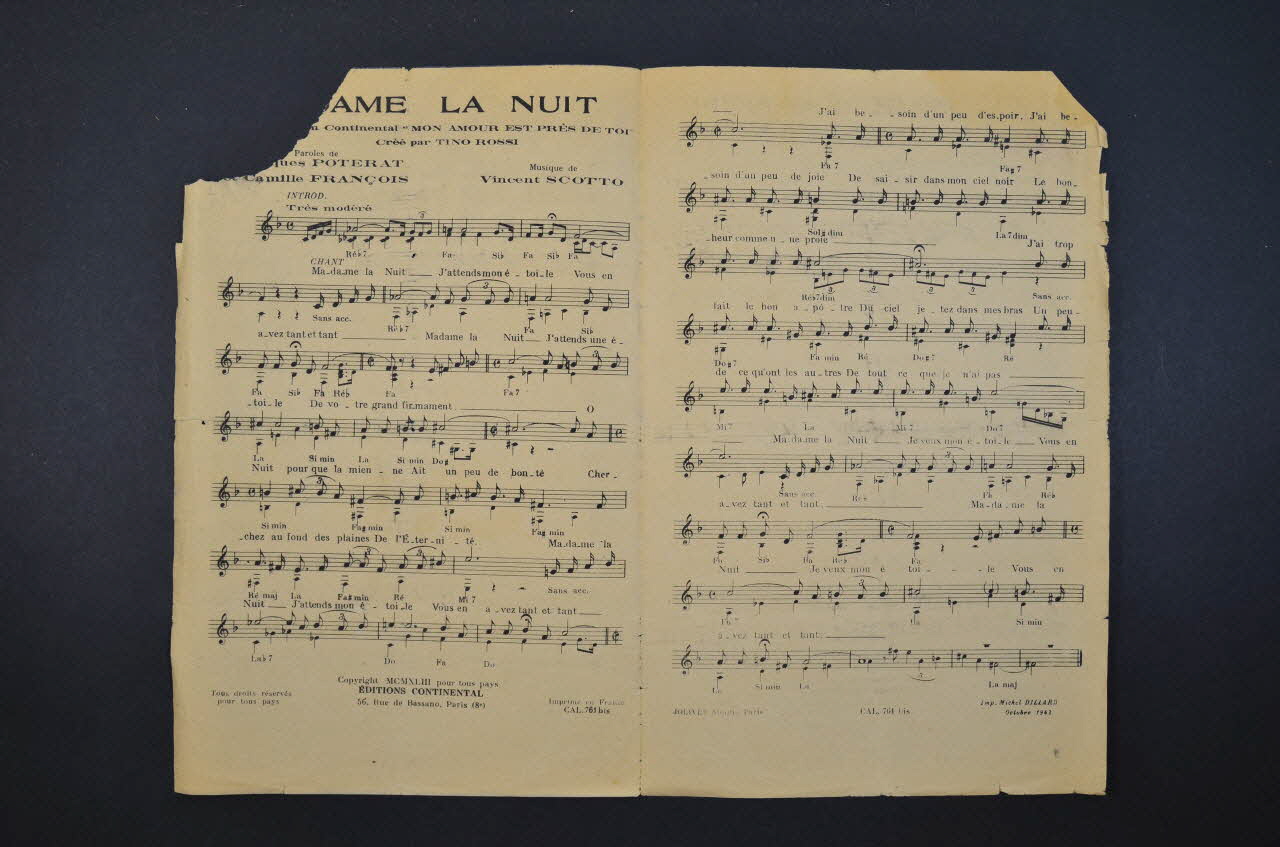 AME LA NUIT
Continental "MON AMOUR EST PRÈS DE TOI"
Créé par TINO ROSSI
Paroles de
ques POTERAT
Camille FRANÇOIS
Musique de
Vincent SCOTTO
INTROD.
Très modéré
Réb7 Fa Sib Fa Sib Fa
CHANT
Ma-da-me la Nuit J'attends mon é-toi-le Vous en
Sans acc. Réb7 Fa Sib
a-vez tant et tant Madame la Nuit J'attends une é-
Fa Sib Fa Réb Fa Fa7
-toi-le De vo-tre grand fir-mament. O
La Si min La Si min Do#
Nuit pour que la mien-ne Ait un peu de bon-té Cher-
Si min Fa# min Si min Fa# min
-chez au fond des plaines De l'É-ter-ni-té. Ma-da-me la
Ré maj La Fa# min Ré Mi 7 Sans acc.
Nuit J'attends mon é-toi-le Vous en a-vez tant et tant
Lab7 Do Fa Do
Copyright MCMXLIII pour tous pays
ÉDITIONS CONTINENTAL
56, Rue de Bassano, Paris (8e)
Tous droits réservés
pour tous pays
Imprimé en France
CAL. 761 bis
J'ai be-soin d'un peu d'es-poir. J'ai be-
Fa7 Fa#7
-soin d'un peu de joie De sai-sir dans mon ciel noir Le bon-
Sol# dim La7dim
-heur comme u-ne proie J'ai trop
Réb7dim Sans acc.
fait le bon a-pô-tre Du ciel je-tez dans mes bras Un peu
Do#7 Fa min Ré Do#7 Ré
de ce qu'ont les au-tres De tout ce que je n'ai pas
Mi7 La Mi7 Do7
Ma-da-me la Nuit Je veux mon é-toi-le Vous en
Sans acc. Réb Fa Réb
a-vez tant et tant. Ma-da-me la
Fa Sib Fa Réb Fa
Nuit Je veux mon é-toi-le Vous en
Fa7 La Si min
a-vez tant et tant
La Si min La La maj
Paris
CAL. 761 bis
Imp. Michel DILLARD
Octobre 1943